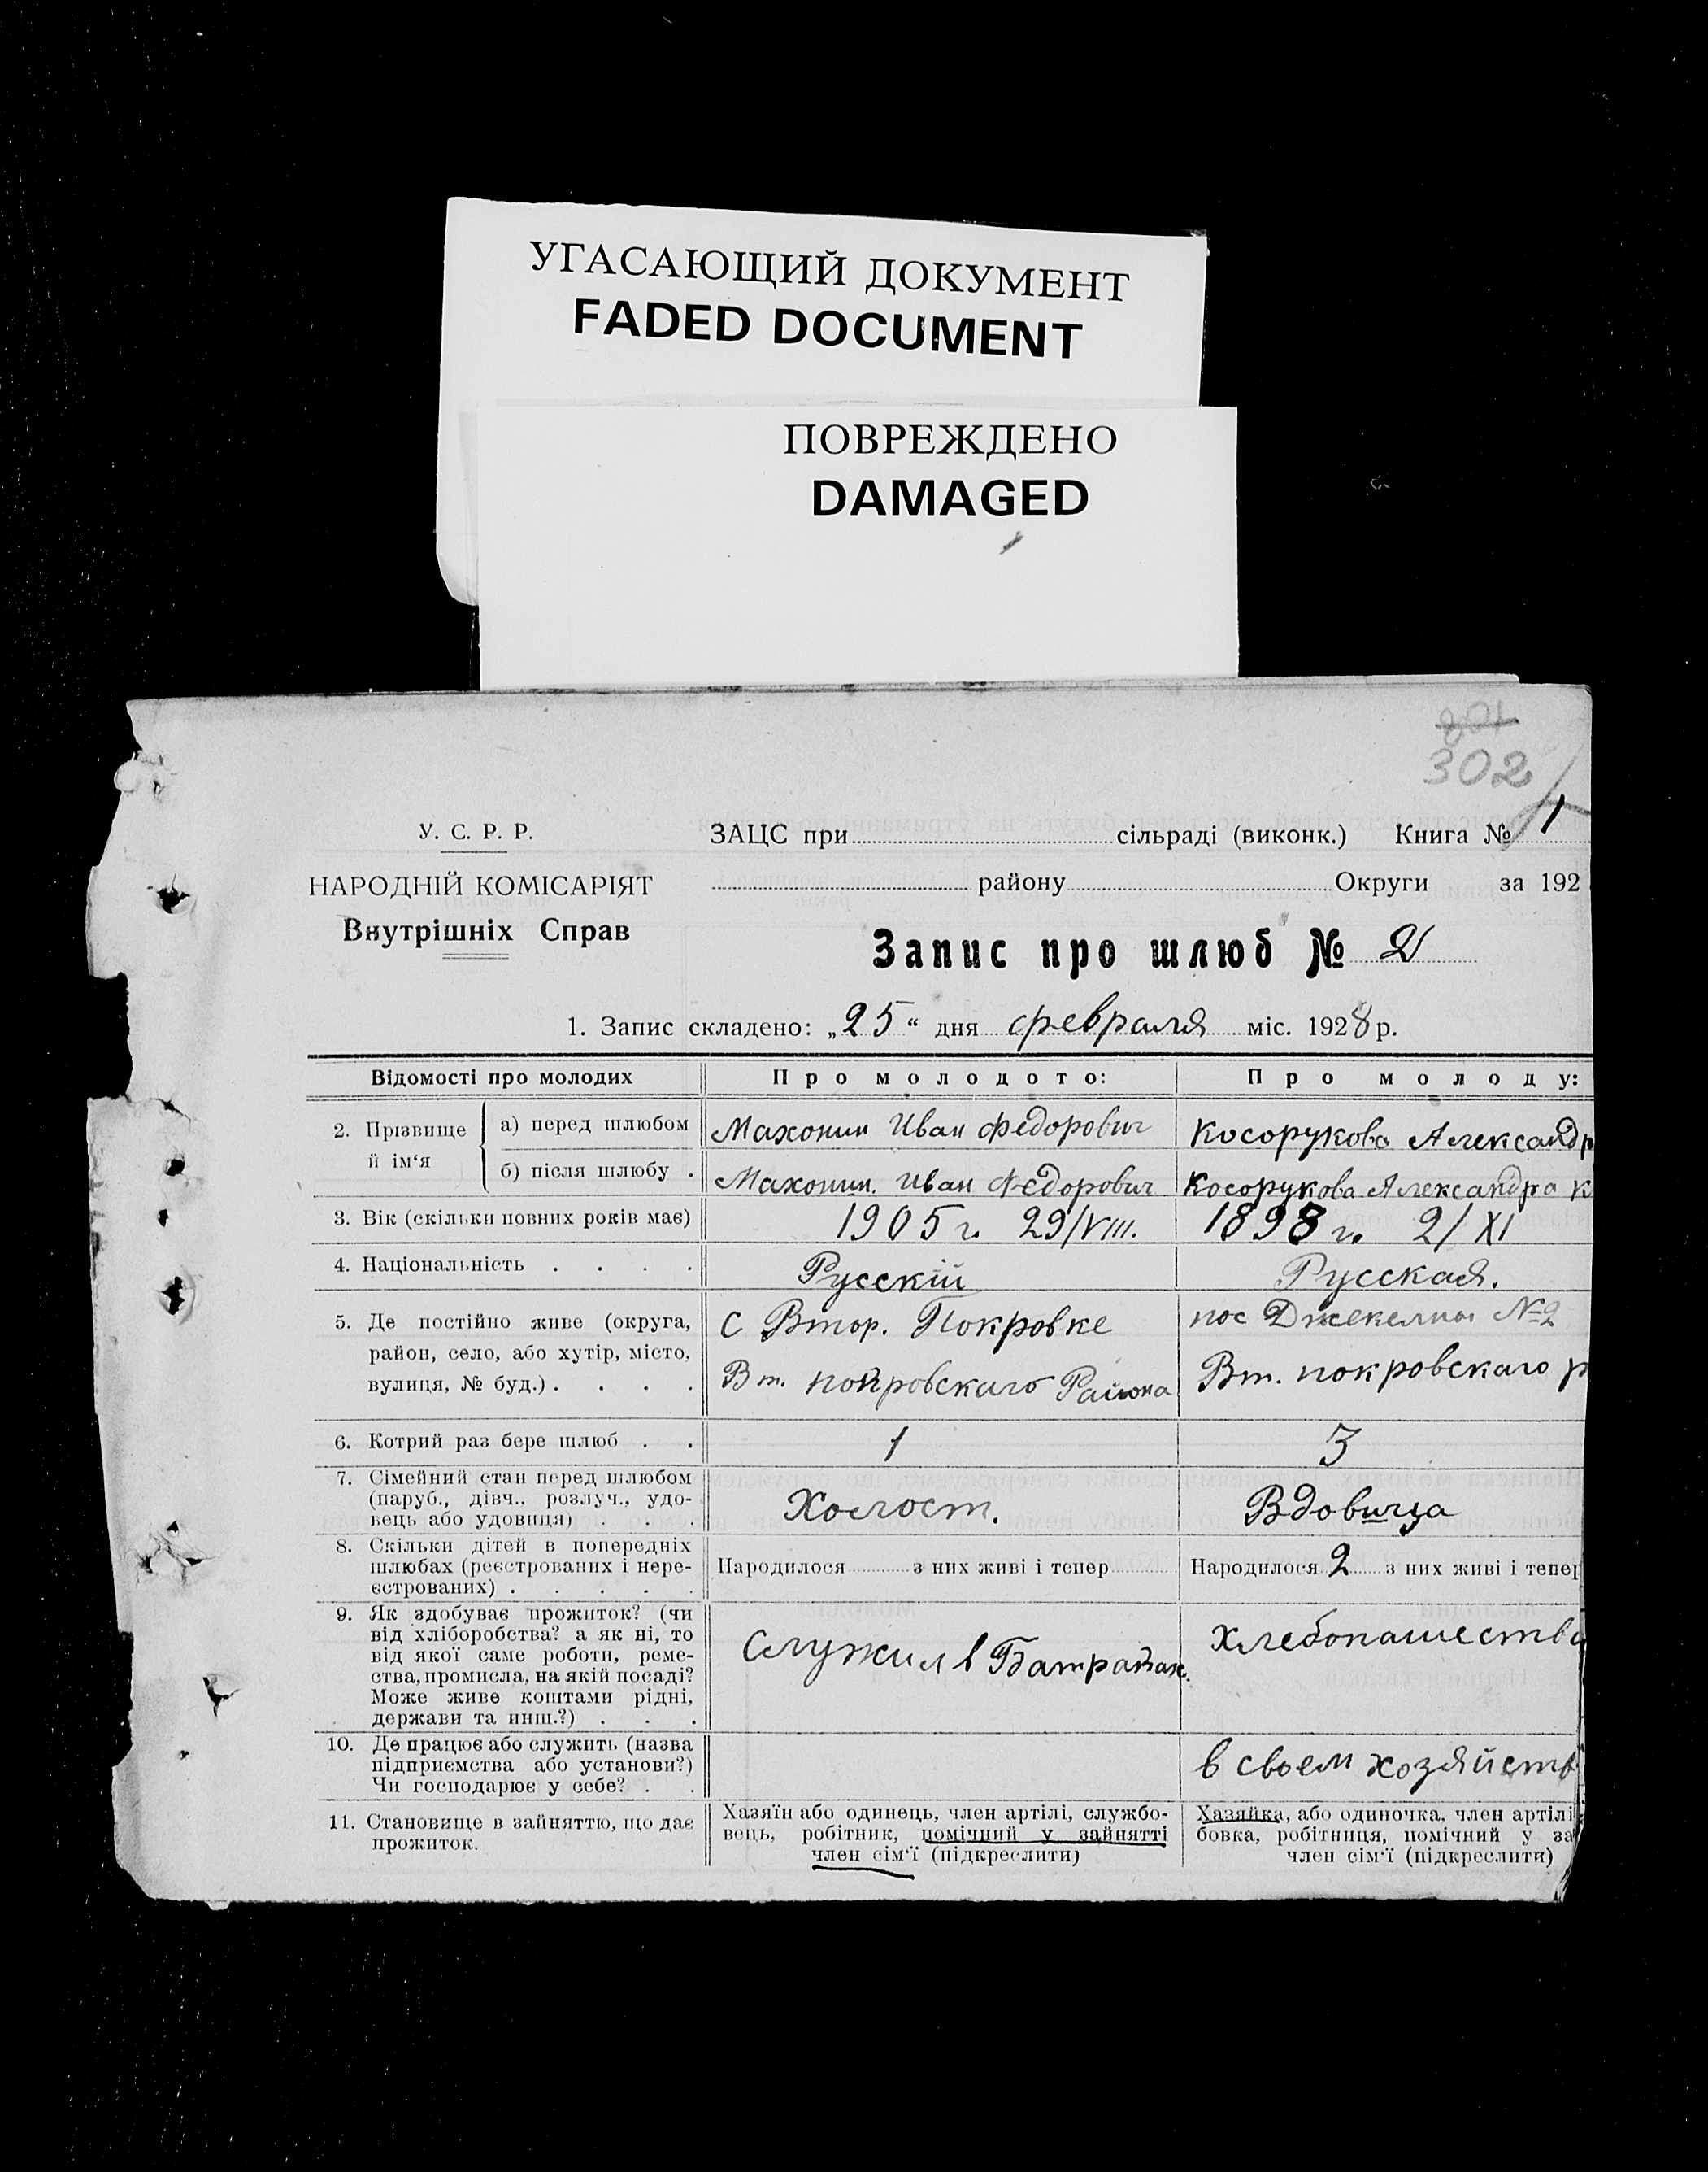 УГАСАЮЩИЙ ДОКУМЕНТ
FADED DOCUMENT
ПОВРЕЖДЕНО
DAMAGED
302
У. С. Р. Р.
НАРОДНІЙ КОМІСАРІЯТ
Внутрішніх Справ
ЗАЦС при сільраді (виконк.) Книга № 1
району Округи за 192
Запис про шлюб № 2
1. Запис складено: „25“ дня февраля міс. 1928 р.
Відомості про молодих
Про молодого:
Про молоду:
2. Прізвище й ім‘я
а) перед шлюбом
Махонин Иван Федорович
Косорукова Александр
б) після шлюбу .
Махонин. Иван Федорович
Косорукова Александра К
3. Вік (скільки повних років має)
1905 г. 29/VIII.
1898 г. 2/XI
4. Національність . . . .
Русскій
Русская.
5. Де постійно живе (округа,
район, село, або хутір, місто,
вулиця, № буд.) . . . .
С Втор. Покровке
Вт. покровскаго Района
пос №2
Вт. покровскаго р
6. Котрий раз бере шлюб . .
1
3
7. Сімейний стан перед шлюбом
(паруб., дівч., розлуч., удо-
вець або удовиця) . . .
Холост.
Вдовица
8. Скільки дітей в попередніх
шлюбах (реєстрованих і нере-
єстрованих) . . . . .
Народилося з них живі і тепер
Народилося 2 з них живі і тепер
9. Як здобуває прожиток? (чи
від хліборобства? а як ні, то
від якої саме роботи, реме-
ства, промисла, на якій посаді?
Може живе коштами рідні,
держави та инш.?) . . .
Служил в Батраках.
Хлебопашества
10. Де працює або служить (назва
підприємства або установи?)
Чи господарює у себе? . .
в своем хозяйств
11. Становище в зайняттю, що дає
прожиток.
Хазяїн або одинець, член артілі, службо-
вець, робітник, помічний у зайнятті
член сім‘ї (підкреслити)
Хазяйка, або одиночка, член артілі
бовка, робітниця, помічний у за
член сім‘ї (підкреслити)